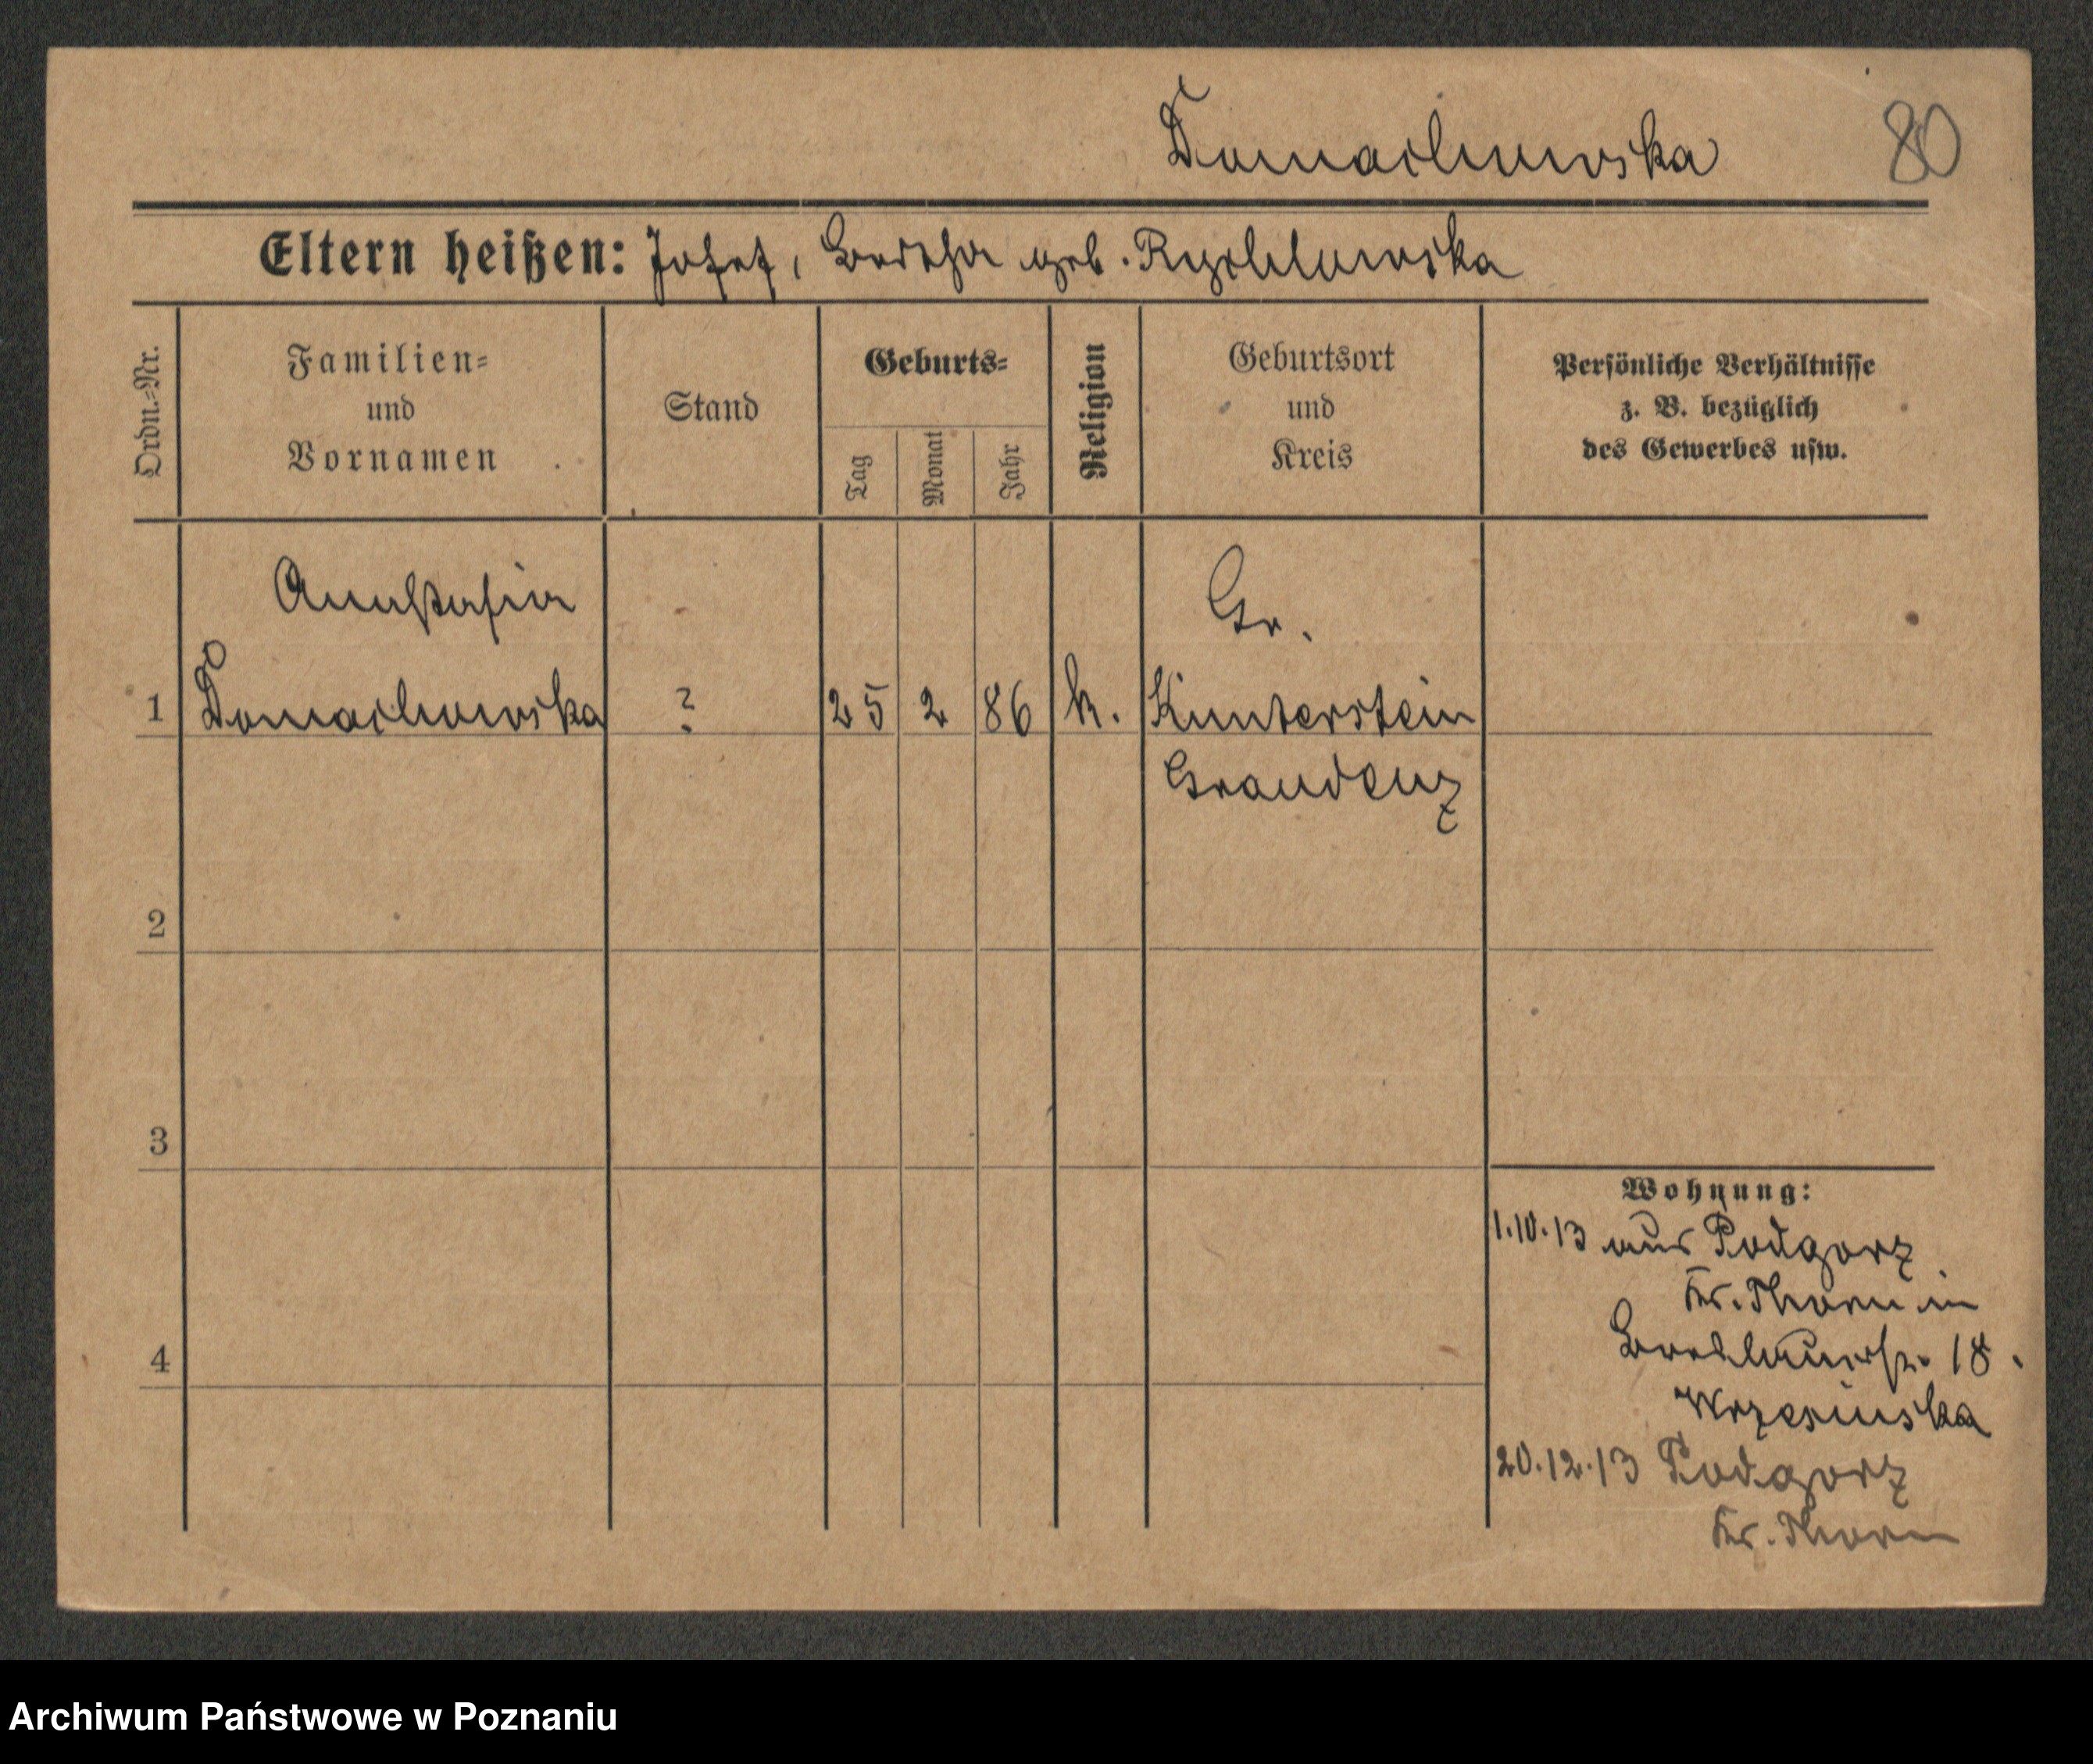 Domachowska 80
Eltern heißen: Josef, Bertha geb. Rychlowska
Ordn.-Nr.
Familien-
und
Vornamen
Stand
Geburts-
Tag
Monat
Jahr
Religion
Geburtsort
und
Kreis
Persönliche Verhältnisse
z. B. bezüglich
des Gewerbes usw.
Anastasia Gr.
1 Domachowska ? 25 2 86 k. Kunterstein
Graudenz
2
3
4
Wohnung:
1.10.13 aus Podgorz
Kr. Thorn in
Breslauerstr. 18.
Wrzesinska
20.12.13 Podgorz
Kr. Thorn
Archiwum Państwowe w Poznaniu